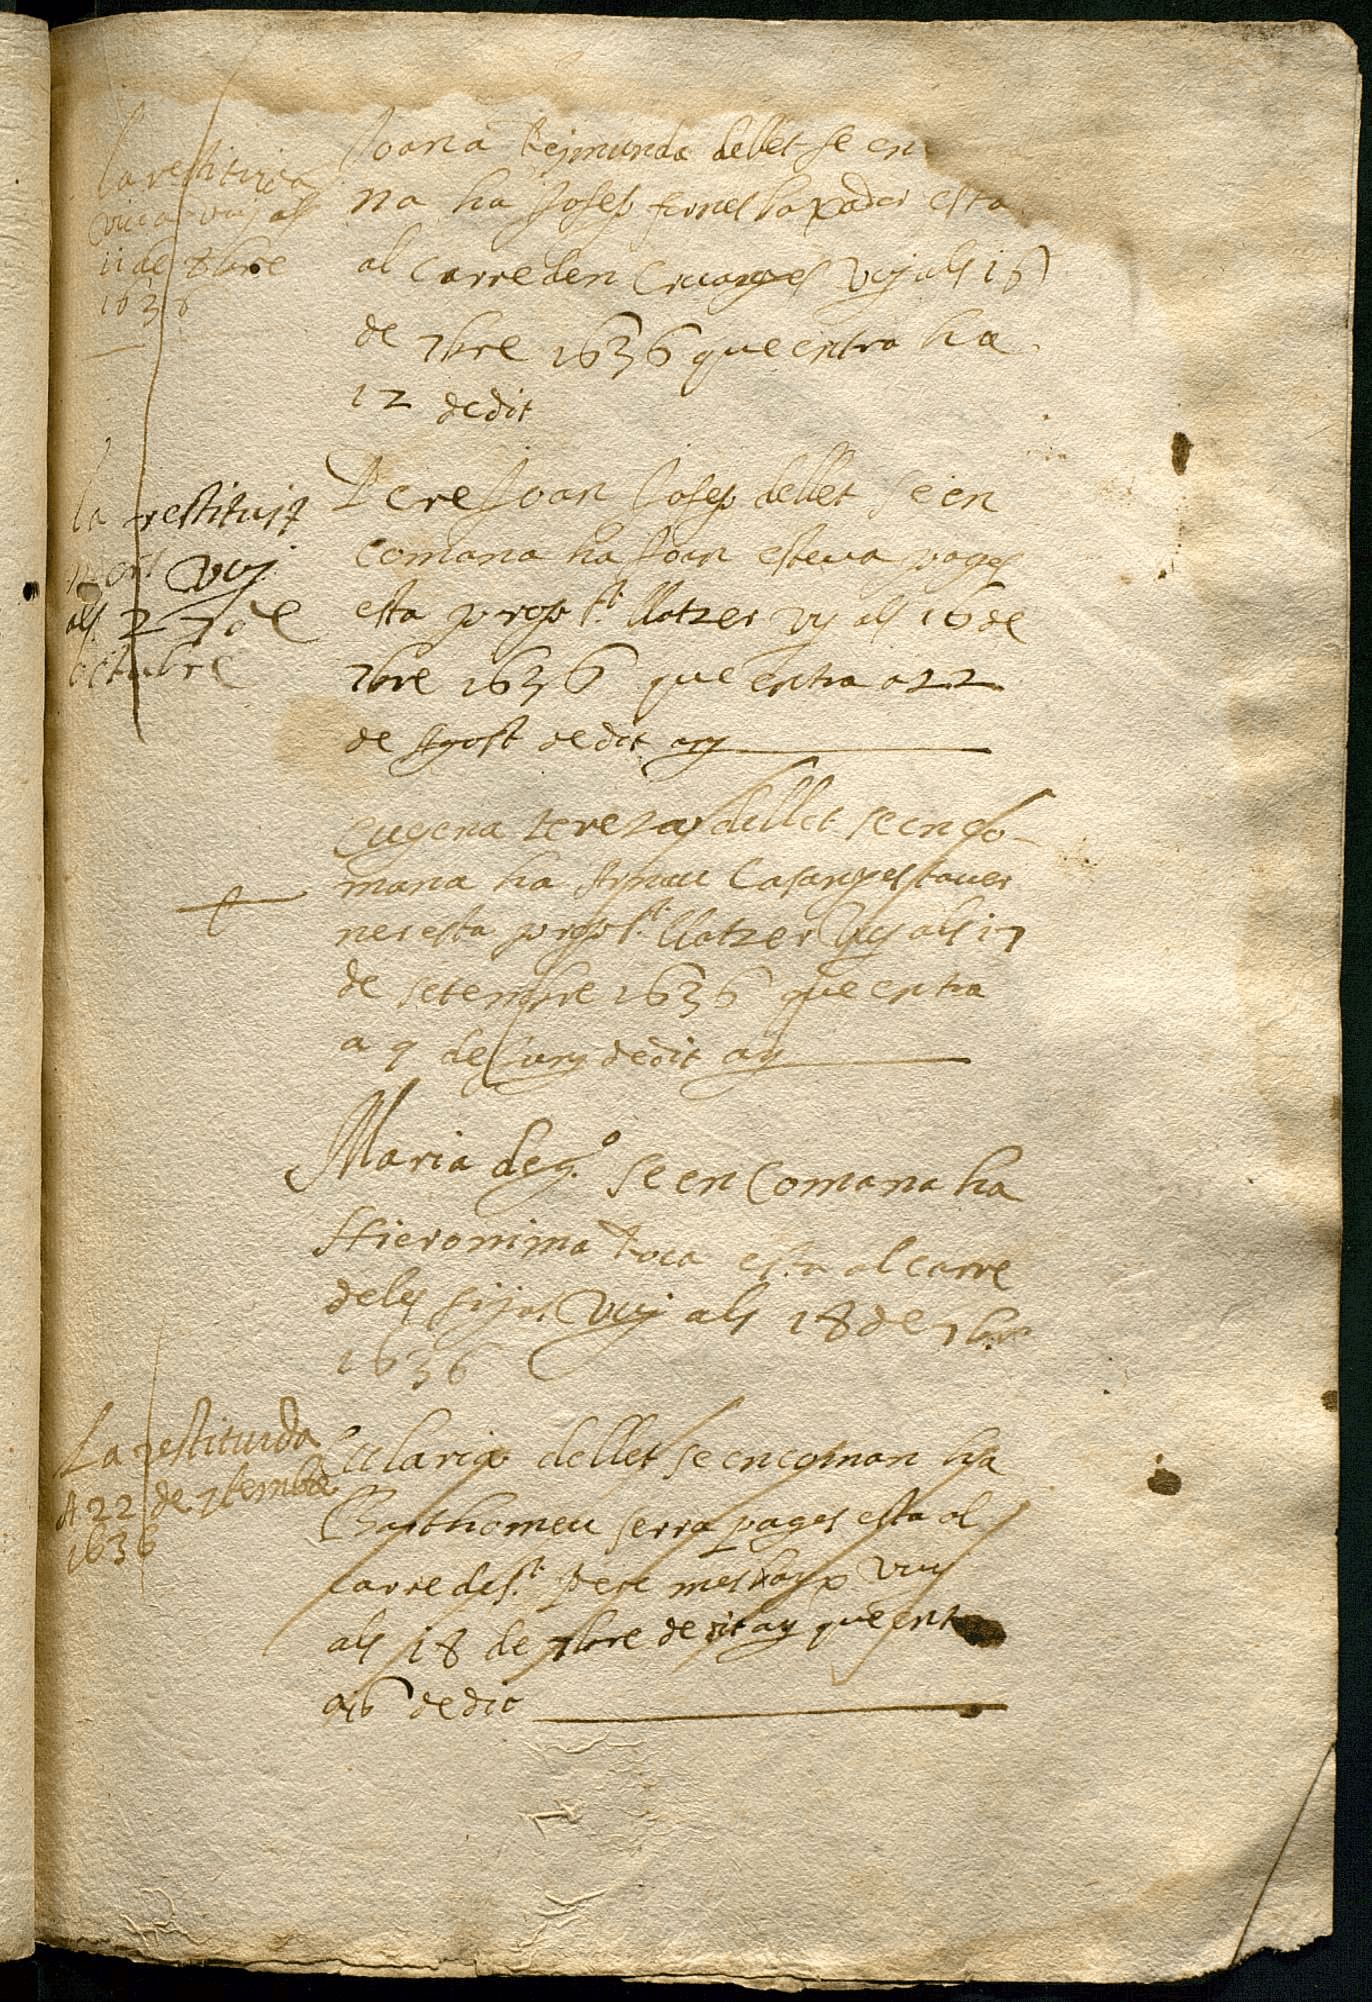 la restituida
viva vuy als
11 de 8bre
1636
Joana Rejmunda dellet se en
na ha Josep fornes baxader esta
al carre den Cruanyes vuy als 16
de 7bre 1636 que entra ha
12 dedit
la restituit
mort vuy
als 27 de
octubre
Pere Joan Josep dellet se en
comana ha Joan esteva pages
esta prop St. llatzer vy als 16 de
7bre 1636 que entra a 22
de Agost dedit any
Eugena tereza dellet se en co-
mana ha Arnau Casanyes taver
ner esta prop St. llatzer vuy als 17
de setembre 1636 que entra
a 9 de Juny dedit any
Maria deg.º se en comana ha
Hieronima Roca esta al carre
dels sijas vuy als 18 de 7bre
1636
La restituida
A 22 de 7tembre
1636
Eularia dellet se en coman ha
Barthomeu serra pages esta al
carre de St. Pere mes baix vuy
als 18 de 7bre de dit ay que ent
a 16 dedit